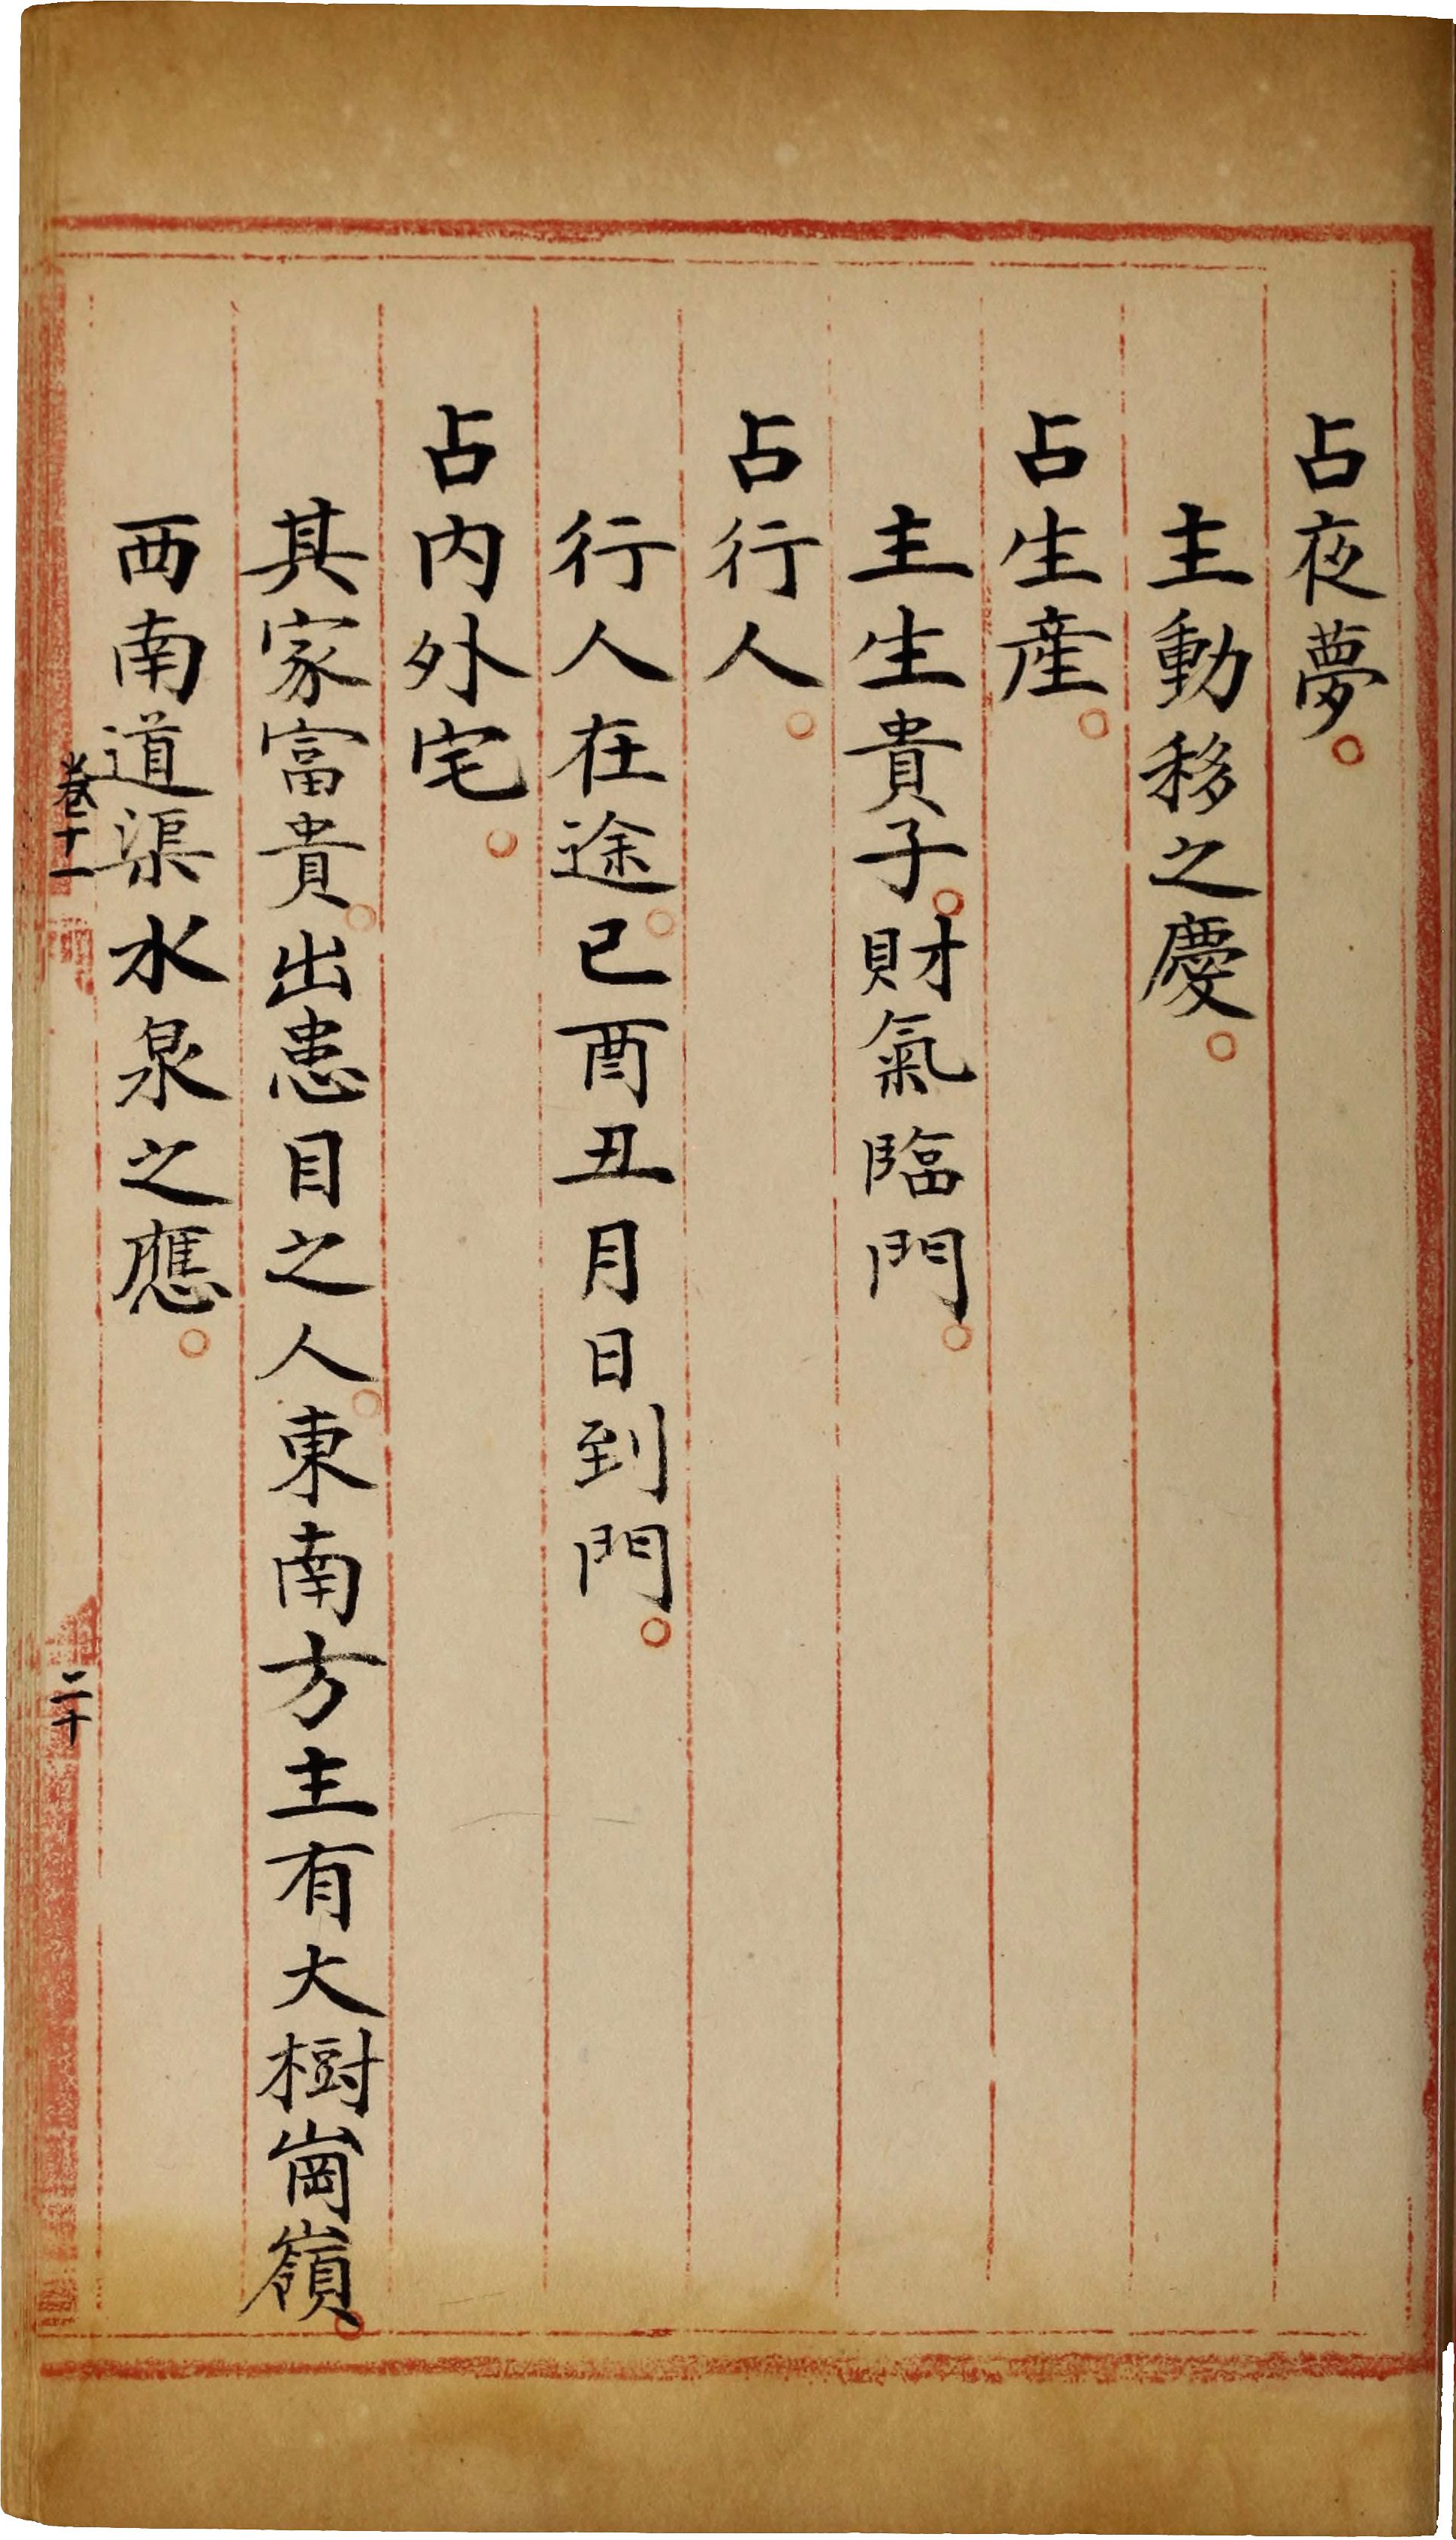 占夜夢。
主動移之慶。
占生產。
主生貴子。財氣臨門。
占行人。
行人在途。巳酉丑月日到門。
占內外宅。
其家富貴。出患目之人。東南方主有大樹崗嶺。
西南道渠水泉之應。
卷十一
二十